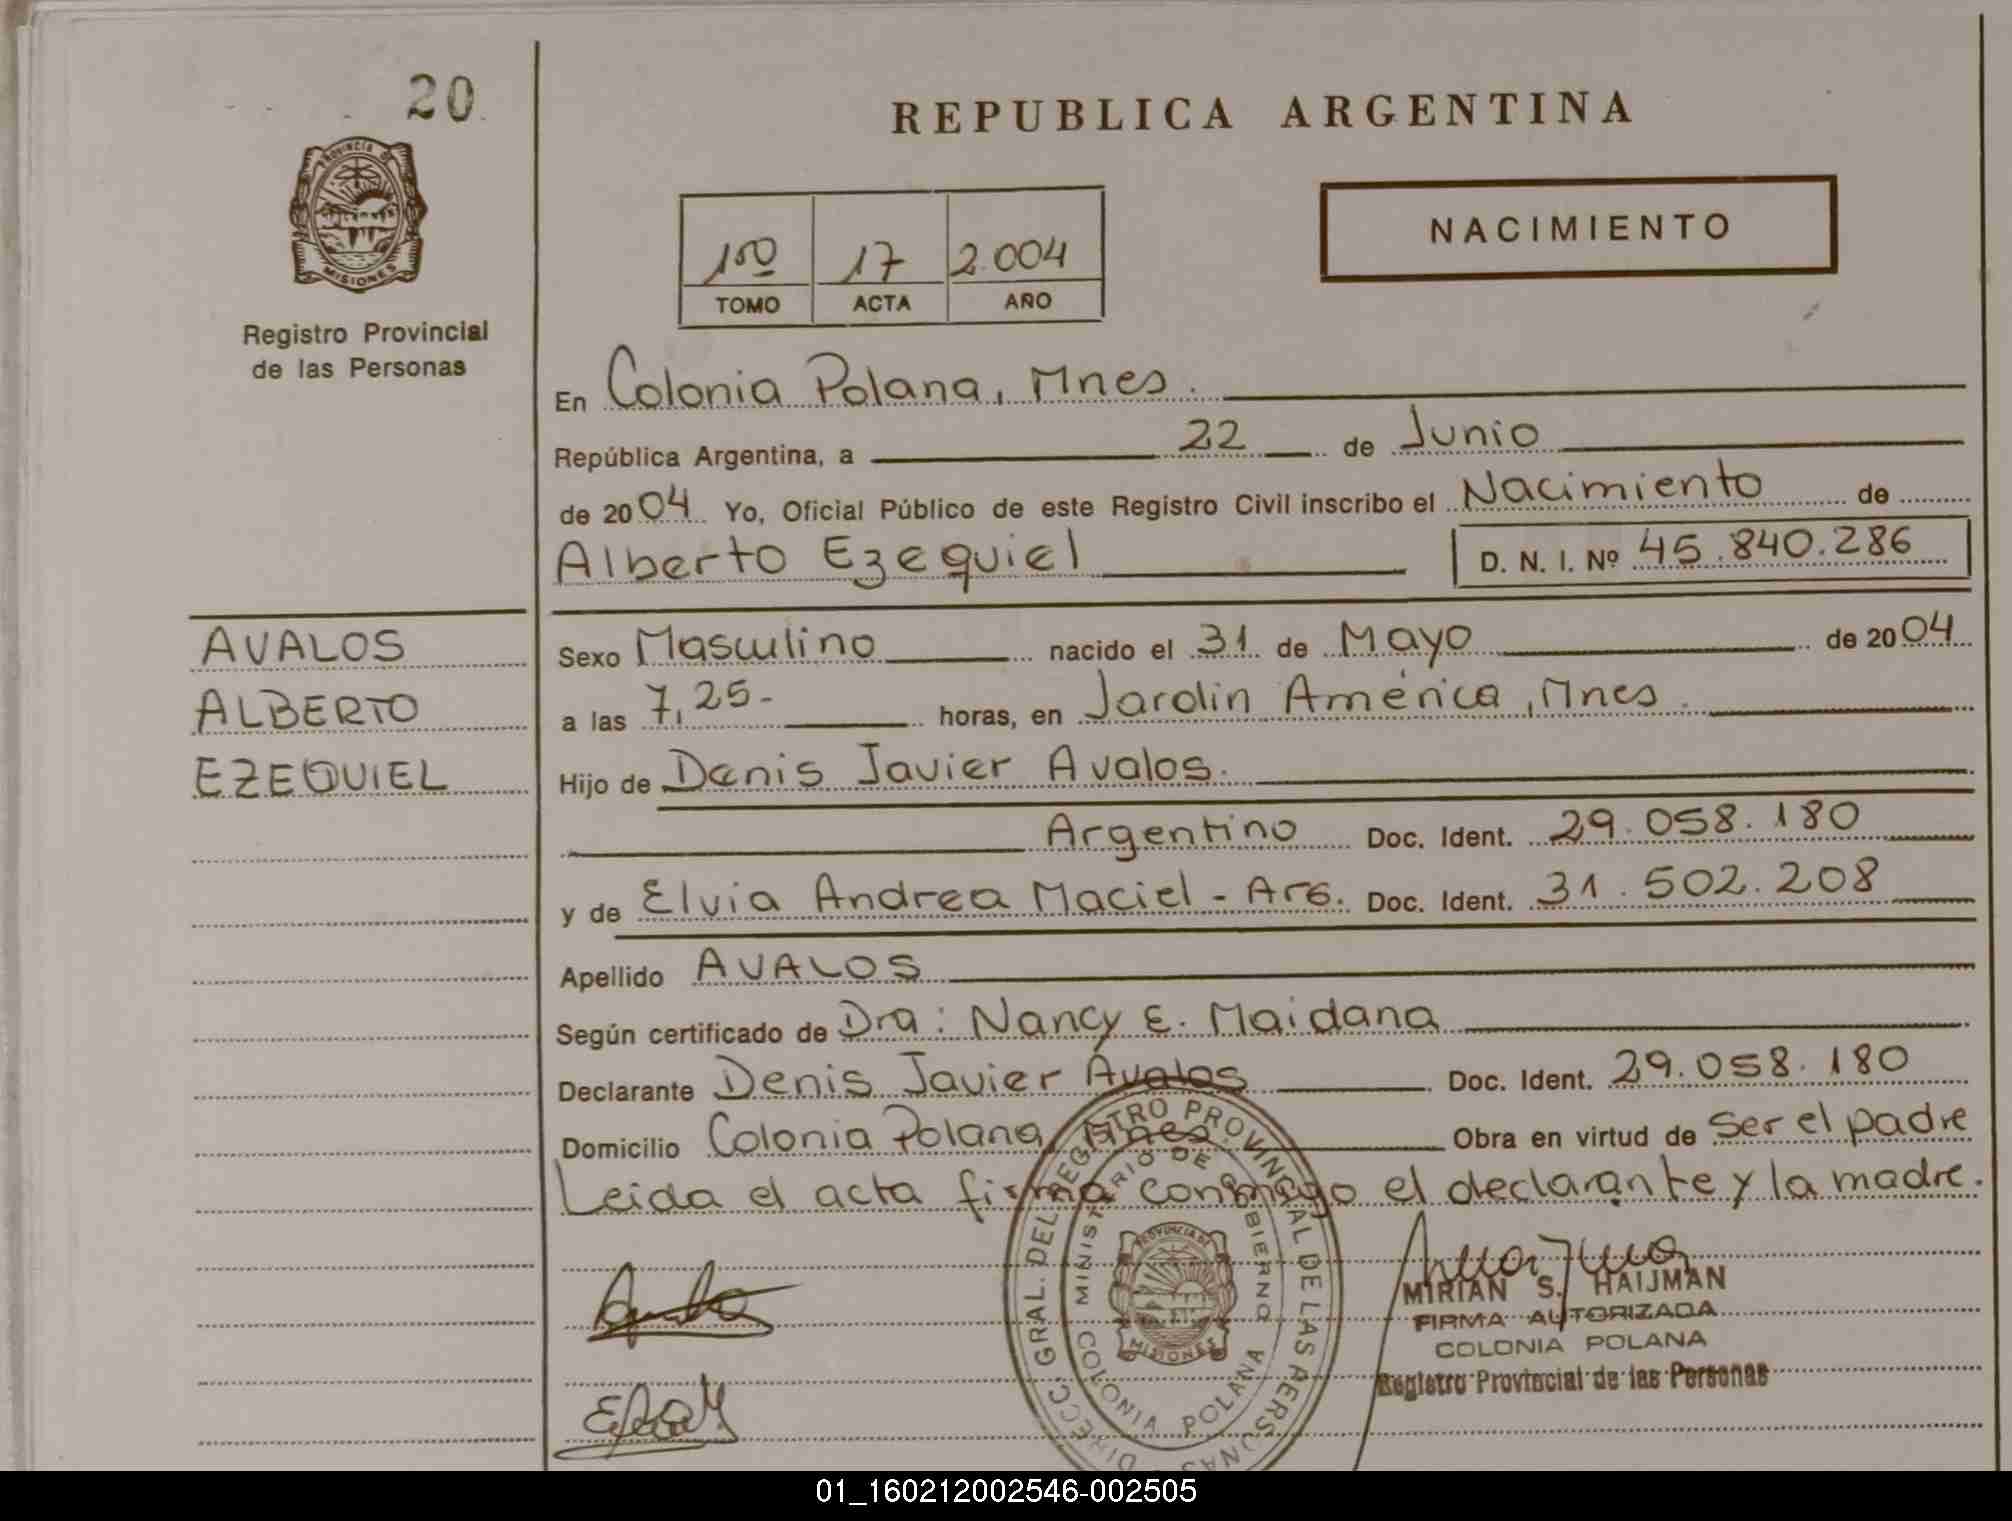 20
PROVINCIA DE
MISIONES
Registro Provincial
de las Personas
AVALOS
ALBERTO
EZEQUIEL
REPUBLICA ARGENTINA
1º 17 2.004
TOMO ACTA AÑO
NACIMIENTO
En Colonia Polana, Mnes.
República Argentina, a 22 de Junio
de 2004 Yo, Oficial Público de este Registro Civil inscribo el Nacimiento de
Alberto Ezequiel D. N. I. Nº 45.840.286
Sexo Masculino nacido el 31 de Mayo de 2004
a las 7,25- horas, en Jardin América, Mnes.
Hijo de Denis Javier Avalos.
Argentino Doc. Ident. 29.058.180
y de Elvia Andrea Maciel - Arg. Doc. Ident. 31.502.208
Apellido AVALOS
Según certificado de Dra: Nancy E. Maidana
Declarante Denis Javier Avalos Doc. Ident. 29.058.180
Domicilio Colonia Polana, Mnes. Obra en virtud de ser el padre
Leida el acta firma conmigo el declarante y la madre.
DIRECC. GRAL. DEL REGISTRO PROVINCIAL DE LAS PERSONAS
MINISTERIO DE GOBIERNO
COLONIA POLANA
PROVINCIA DE
MISIONES
MIRIAN S. HAIJMAN
FIRMA AUTORIZADA
COLONIA POLANA
Registro Provincial de las Personas
01_160212002546-002505